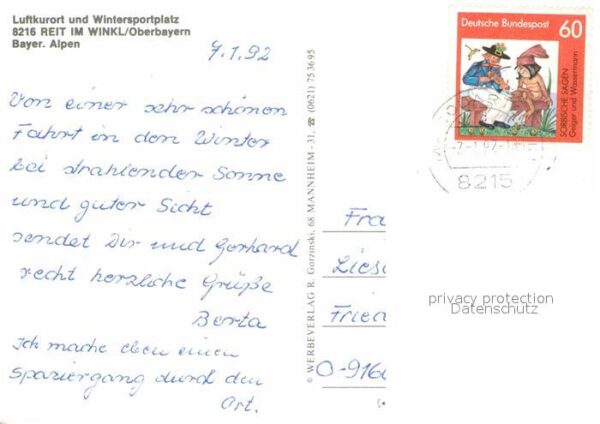 Luftkurort und Wintersportplatz
8216 REIT IM WINKL/Oberbayern
Bayer. Alpen
7.1.92
Von einer sehr schönen
Fahrt in den Winter
bei strahlender Sonne
und guter Sicht
sendet Dir und Gerhard
recht herzliche Grüße
Berta
Ich mache eben einen
Spaziergang durch den
Ort.
© WERBEVERLAG R. Gorzinski, 68 MANNHEIM - 31, ☎ (0621) 753695
Deutsche Bundespost 60
SORBISCHE SAGEN
Geiger und Wassermann
8215
Fra
Liese
Fried
O-916
privacy protection
Datenschutz